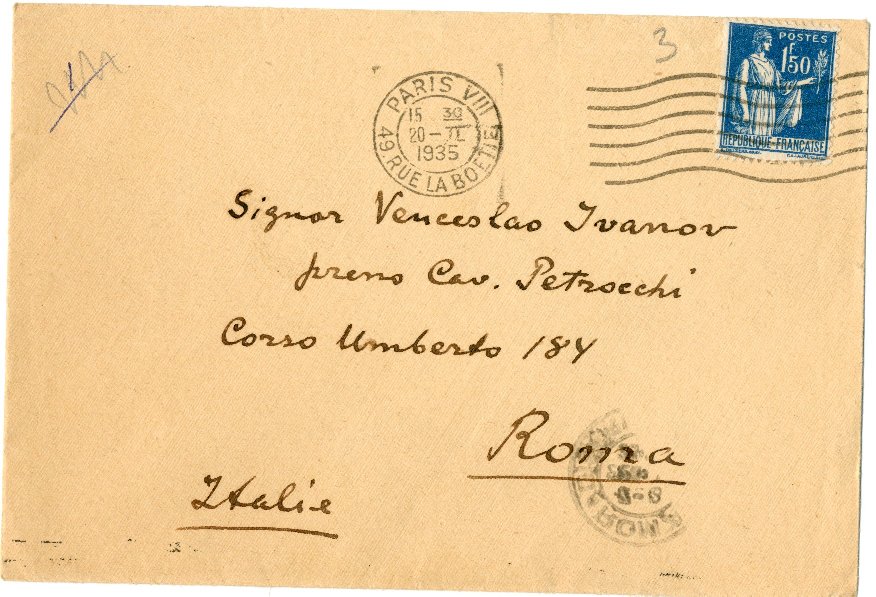 3
POSTES
1F50
RÉPUBLIQUE FRANÇAISE
PARIS VIII
15 30
20 - II
1935
49 RUE LA BOETIE
Signor Venceslao Ivanov
preno Cav. Petrocchi
Corso Umberto 184
Roma
Italie
ROMA